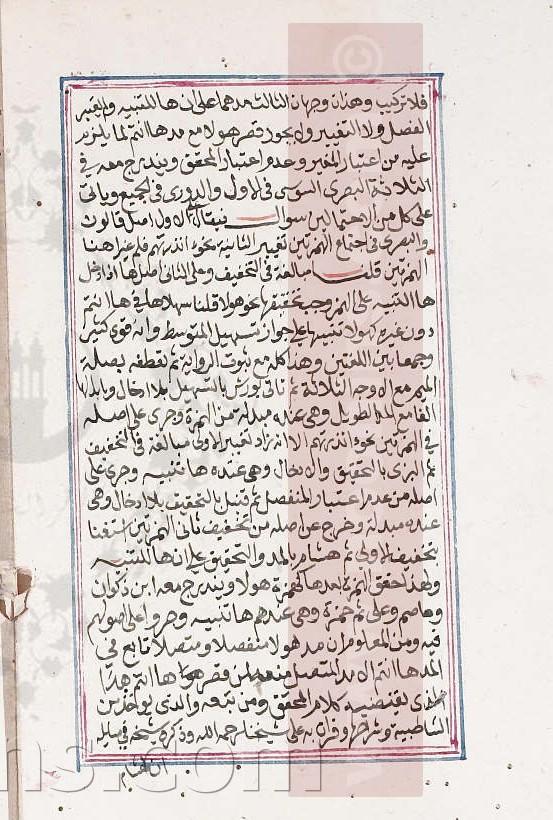 فلا تركيب وهذان وجهان الثالث مدهما على ان ها للتنبيه ولم يعتبر
الفصل ولا التغيير ولا يجوز قصر هؤلا مع مد ها انتم لما يلزم
عليه من اعتبار المغير وعدم اعتبار المحقق ويندرج معه في
الثلاثة البصري السوسي في الاول والدوري في الجميع وياتي
على كل من الاحتمالين سوال فيقال الاول اصل قالون
والبصري في اجتماع الهمزتين تغيير الثانية نحو ءانذرتهم فلم غيرا هنا
الهمزتين قلت مبالغة في التخفيف وعلى الثاني اصلها اذا دخل
ها التنبيه على الهمز وجب تحقيقها نحو هؤلا قلنا سهلاها في ها انتم
دون غيره كهؤلا تنبيها على جواز تسهيل المتوسط وانه قوي كثير
وجمعا بين اللغتين وهذا كله مع ثبوت الرواية ثم تعطفه بصلة
الميم مع الاوجه الثلاثة ثم تاتي بورش بالتسهيل بلا ادخال وابدالها
الفا مع المد الطويل وهي عنده مبدلة من الهمزة وجرى على اصله
في الهمزتين نحو ءانذرتهم الا انه زاد تغيير الاولى مبالغة في التخفيف
ثم البزي بالتحقيق والادخال وهي عنده ها تنبيه وجرى على
اصله من عدم اعتبار المنفصل ثم قنبل بالتحقيق بلا ادخال وهي
عنده مبدلة وخرج عن اصله من تخفيف ثاني الهمزتين استغنا
بتخفيف الاولى ثم هشام بالمد والتحقيق على انها للتنبيه
ولهذا حقق الهمزة بعدها كهمزة هؤلا ويندرج معه ابن ذكوان
وعاصم وعلي ثم حمزة وهي عندهم ها تنبيه وجروا على اصولهم
فيه ومن المعلوم ان مد هؤلا منفصلا ومتصلا تابع في
المد ها انتم الا مد المتصل منه لمن قصر ها انتم هذا
الذي يقتضيه كلام المحقق ومن تبعه والذي يوخذ من
الشاطبية وشراحها وقرات به على شيخنا رحمه الله وذكره شيخه في مسايله
ان هشام